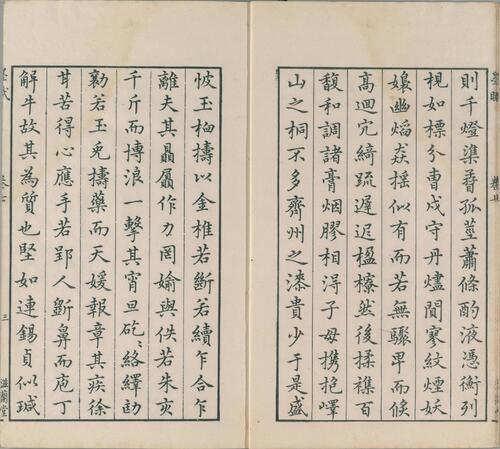 則千燈漾春孤莖蕭條酌液憑衡列
梘如標分曹戍守丹爐閒寥紋煙妖
嬝幽焰焱搖似有而若無驟畢而候
高迴穴綺疏遲迟楹橑然後揉襍百
馥和調諸膏烟膠相淂子母携抱嶧
山之桐不多齊州之漆貴少于是盛
怶玉柏擣以金椎若斷若續乍合乍
離夫其贔屭作力罔媮與佚若朱亥
千斤而博浪一擊其宵旦矻〻絡繹劻
勷若玉兎擣藥而天媛報章其疾徐
苷苦得心應手若郢人斵鼻而庖丁
解牛故其為質也堅如連錫貞似瑊
卷七
三
滋蘭堂